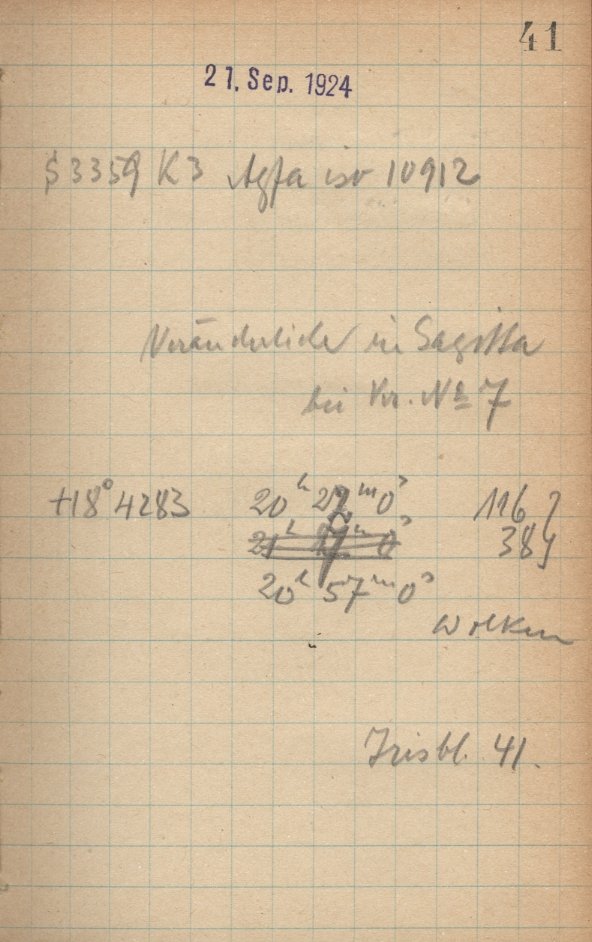 41
21. Sep. 1924
S 3359 K3 Agfa iso 10912
Veränderliche in Sagitta
bei Vr. No 7
+18° 4283 20h 27m 0s 116
21h 0s 38
20h 57m 0s
Wolken
Irisbl. 41.